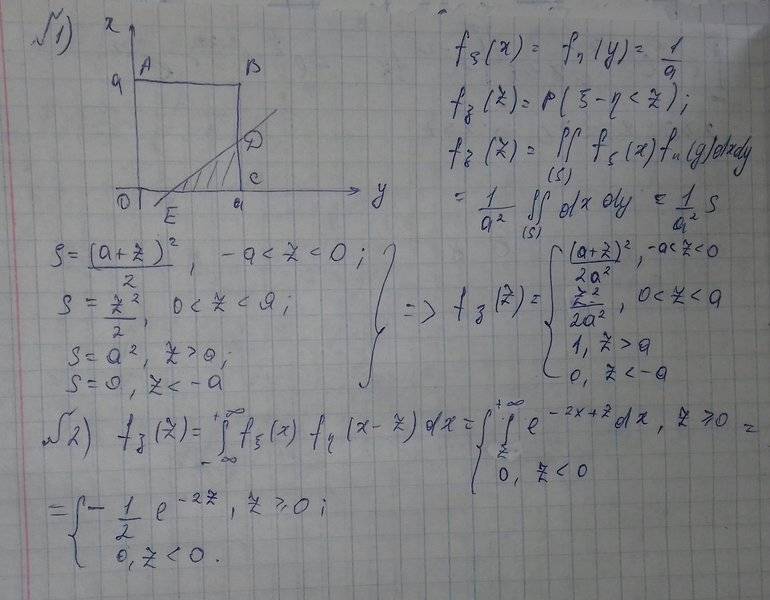 №1)
x
a A B
D
C
0 E a y
f_ξ(x) = f_η(y) = 1/a
f_ζ(z) = P(ξ - η < z);
f_ζ(z) = ∬_(S) f_ξ(x) f_η(y) dxdy
= 1/a² ∬_(S) dx dy = 1/a² S
S = (a+z)²/2, -a < z < 0;
S = z²/2, 0 < z < a;
S = a², z > a;
S = 0, z < -a
} => f_ζ(z) = { (a+z)²/2a², -a < z < 0
z²/2a², 0 < z < a
1, z > a
0, z < -a
№2) f_ζ(z) = ∫_{-∞}^{+∞} f_ξ(x) f_η(x-z) dx = { ∫_z^{+∞} e^{-2x+z} dx, z ≥ 0 =
0, z < 0
= { - 1/2 e^{-2z}, z ≥ 0;
0, z < 0.